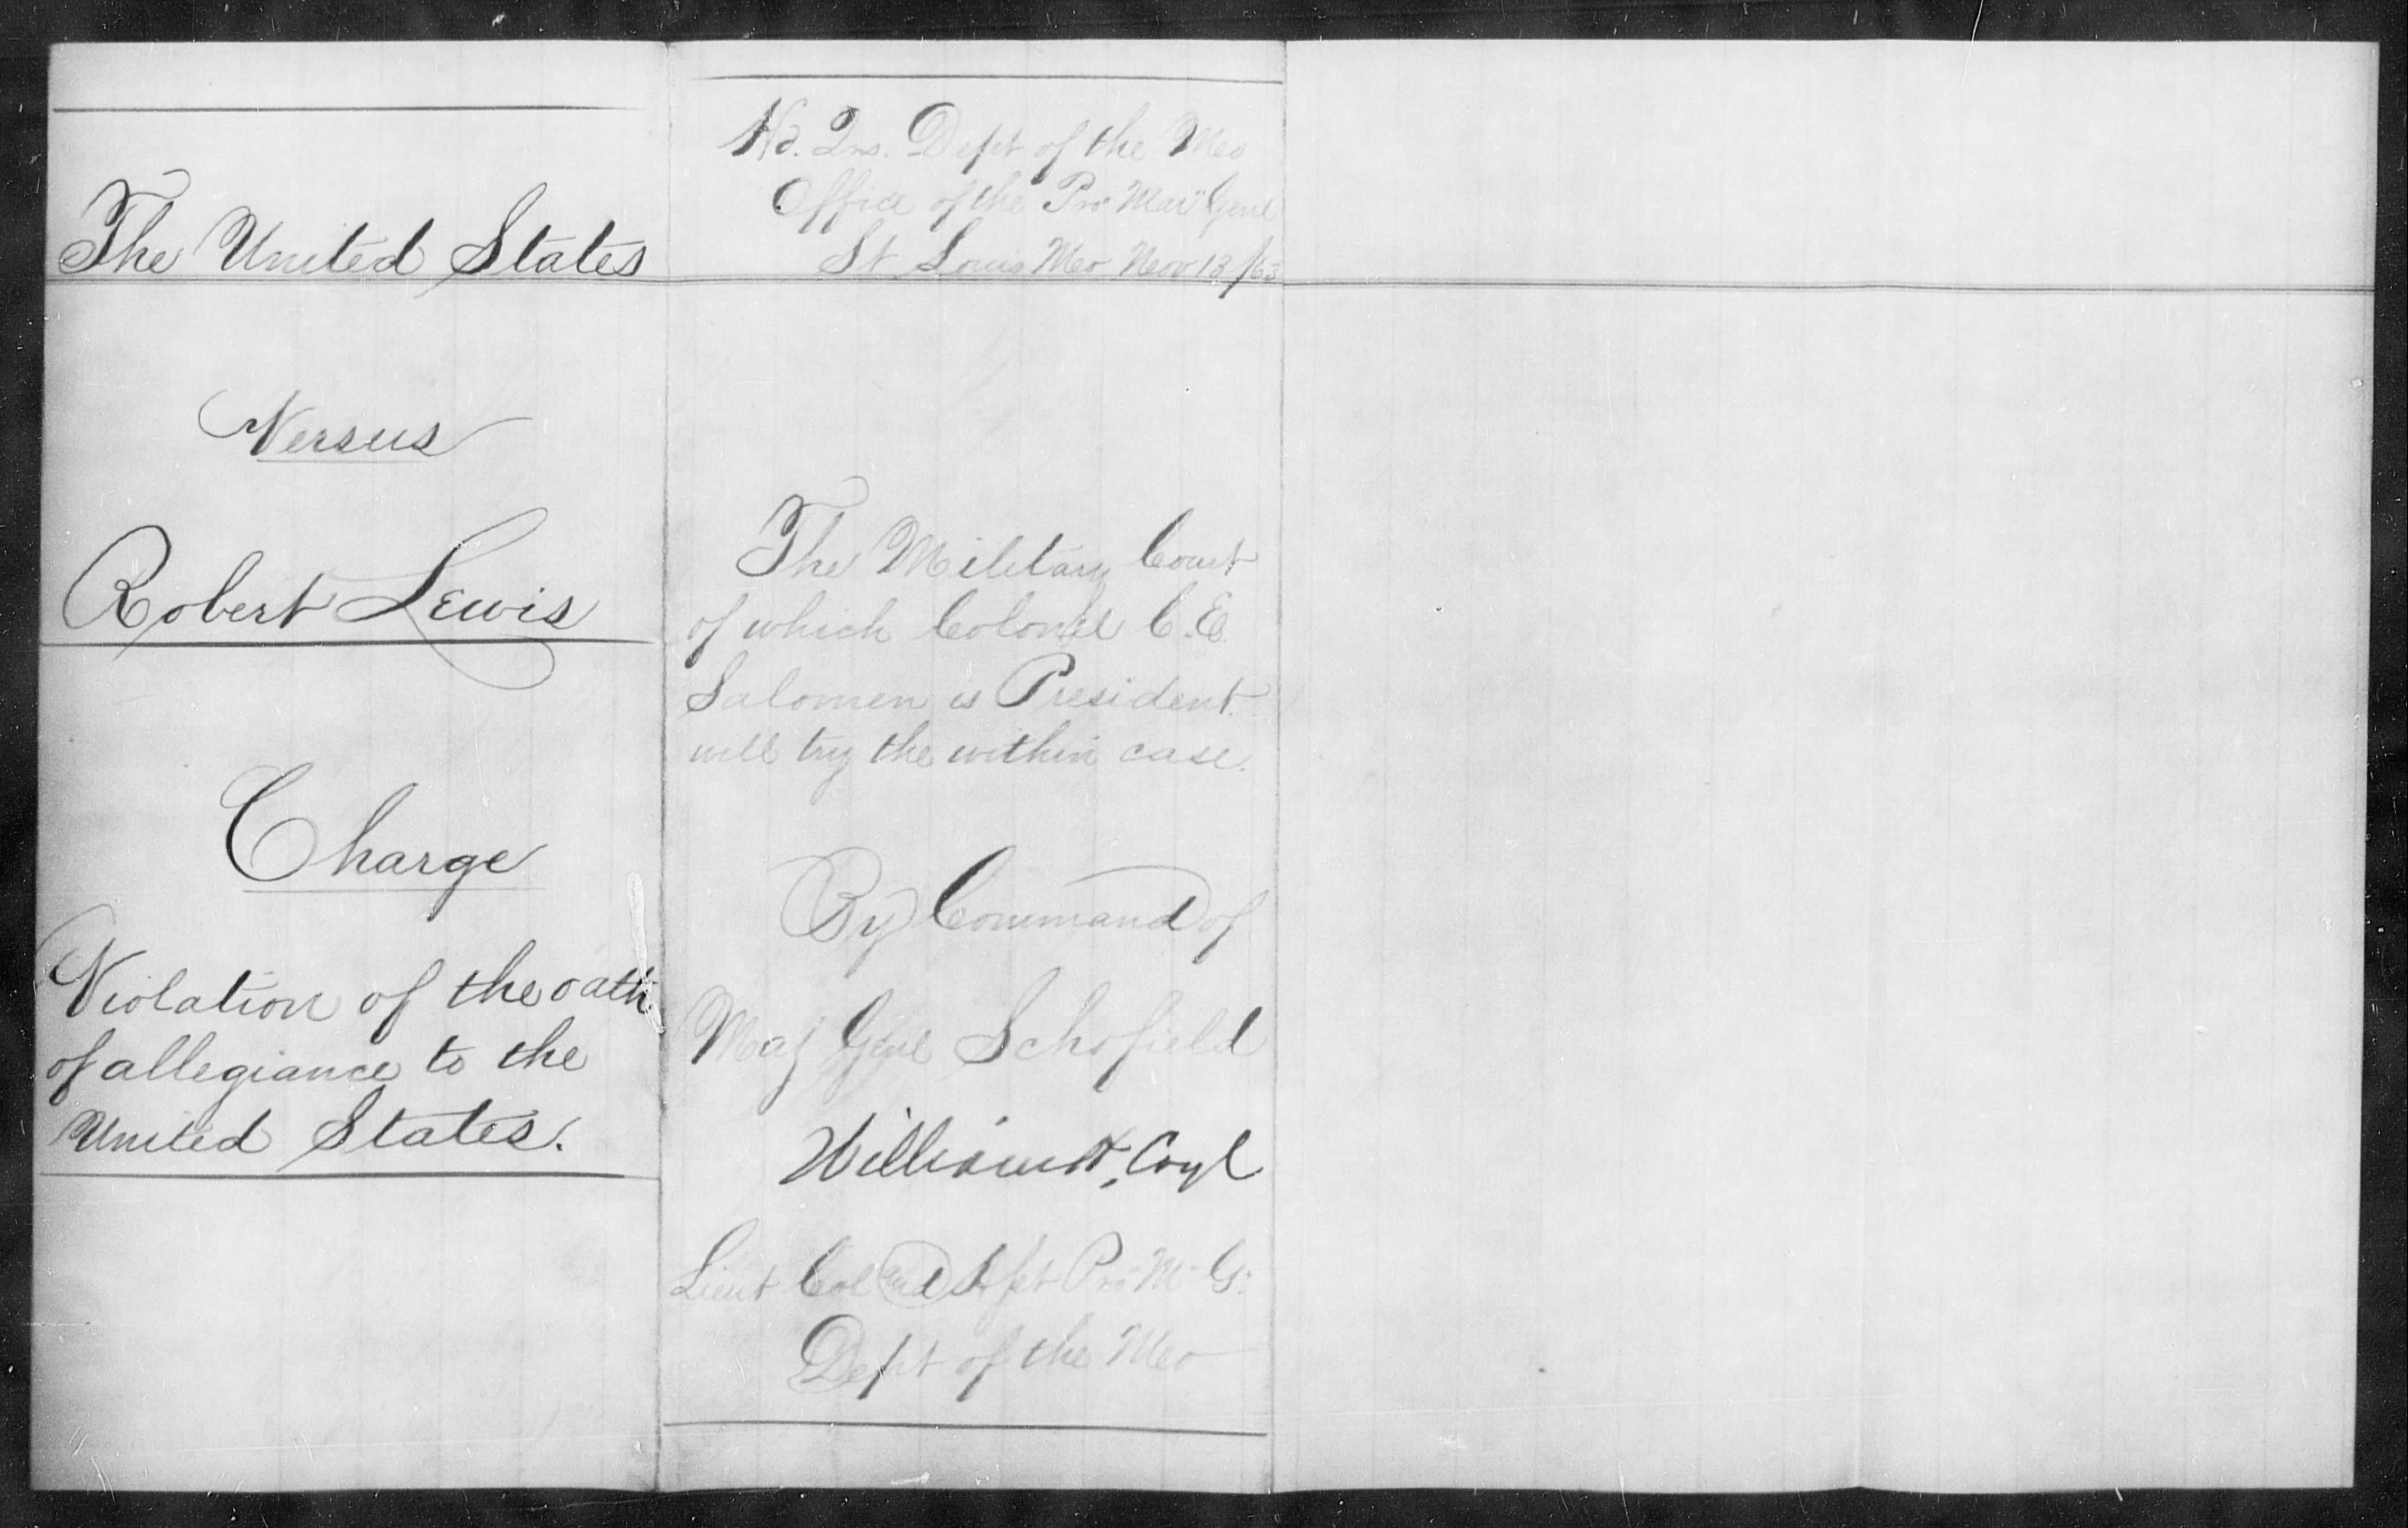 The United States
Versus
Robert Lewis
Charge
Violation of the oath
of allegiance to the
United States.
Hd. Qrs. Dept of the Mo
Office of the Pro Mar Genl
St Louis Mo Nov 13/63
The Military Court
of which Colonel C. E.
Salomen is President
will try the within case.
By Command of
Maj Genl Schofield
William H. Coyl
Lieut Col and Pro M. G.
Dept of the Mo